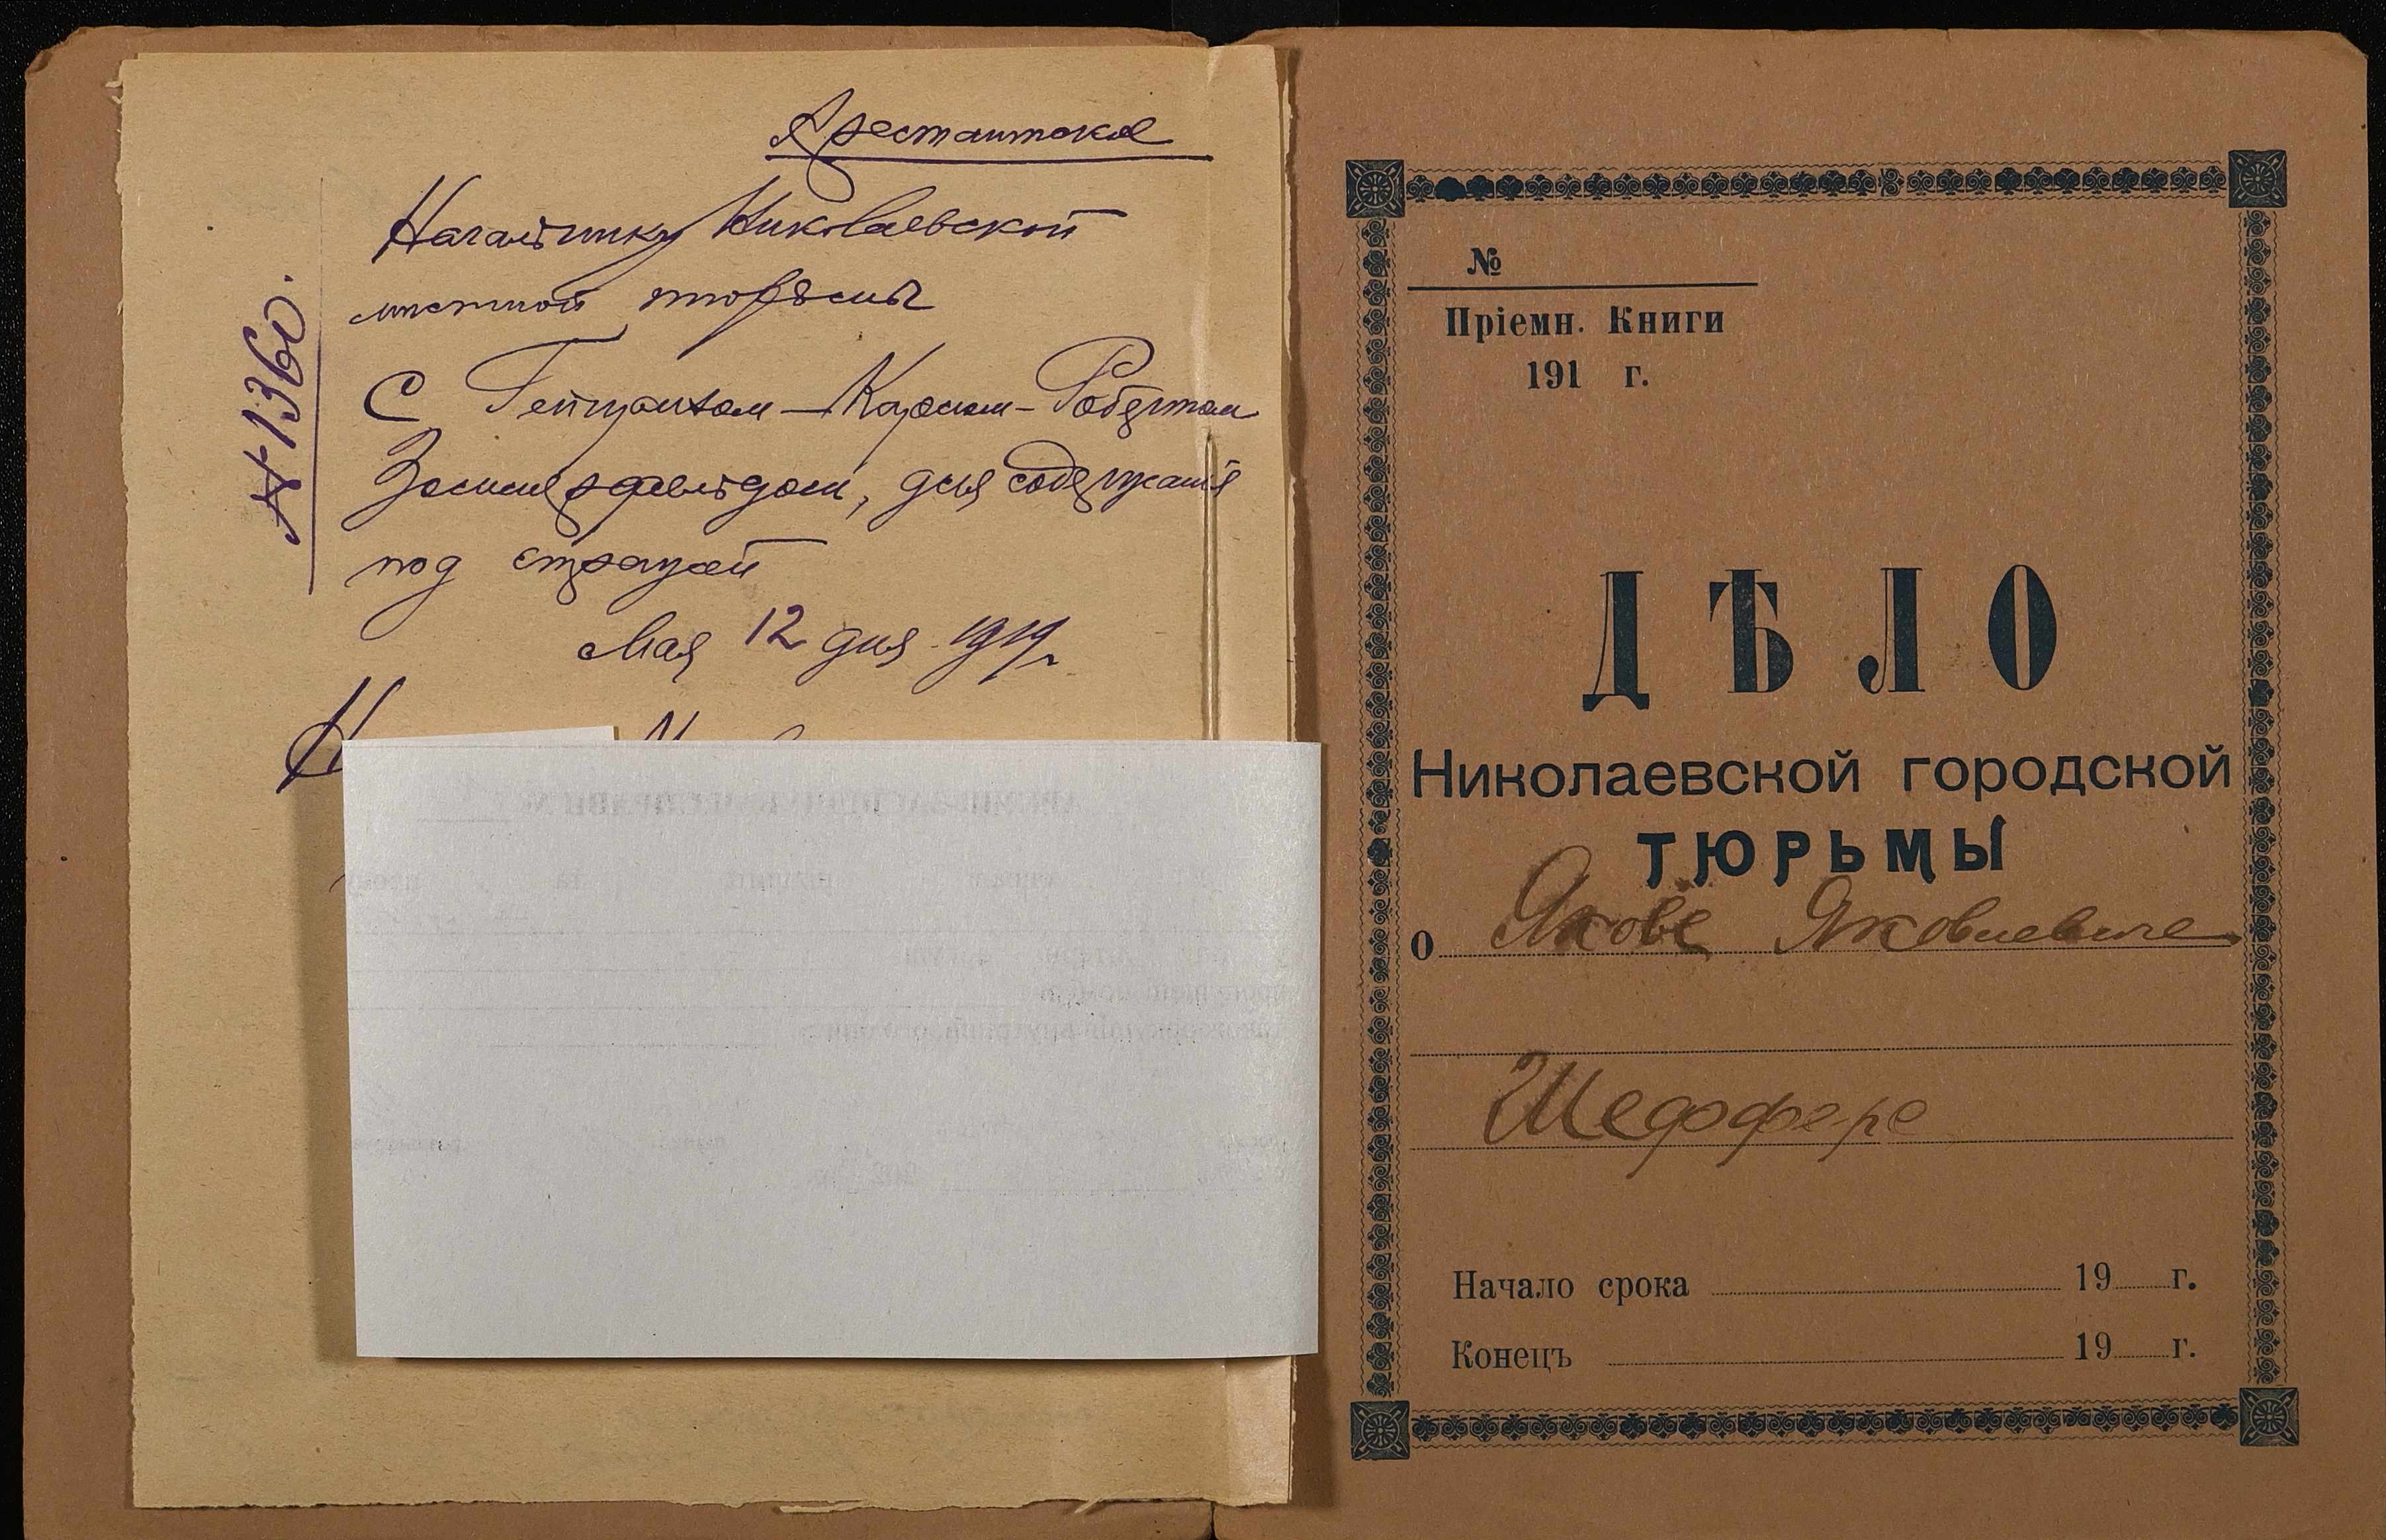 Арестантское
Начальнику Николаевской
местной тюрьмы
С Гейнрихом-Карлом-Робертом
Зоммерфельдом, для содержания
под стражей
Мая 12 дня 1919 г.
№ 1360.
№
Пріемн. Книги
191 г.
ДѢЛО
Николаевской городской
ТЮРЬМЫ
о Якове Яковлевиче
Шеффере
Начало срока 19 г.
Конецъ 19 г.